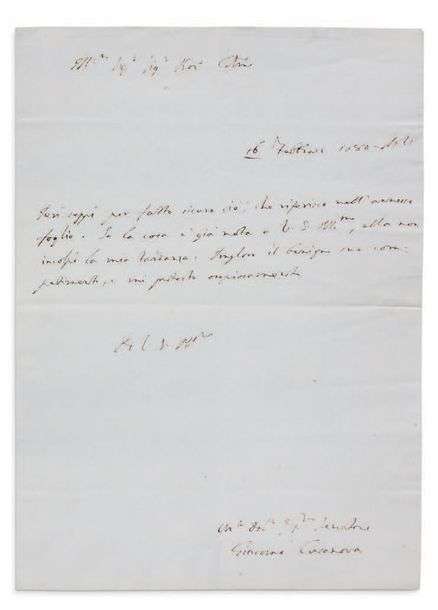 Ill.mo Sig.r Sig.r
16 Febbraro
Jeri seppi per fatto sicuro ciò, che riferisco nell'annesso
foglio. Se la cosa è già nota a V. S. Ill.ma, ella non
incolpi la mia tardanza. Imploro il benigno suo com-
patimento, e mi protesto ossequiosamente
Di V. S. Ill.ma
Um.o Dev.o Servitore
Giacomo Casanova